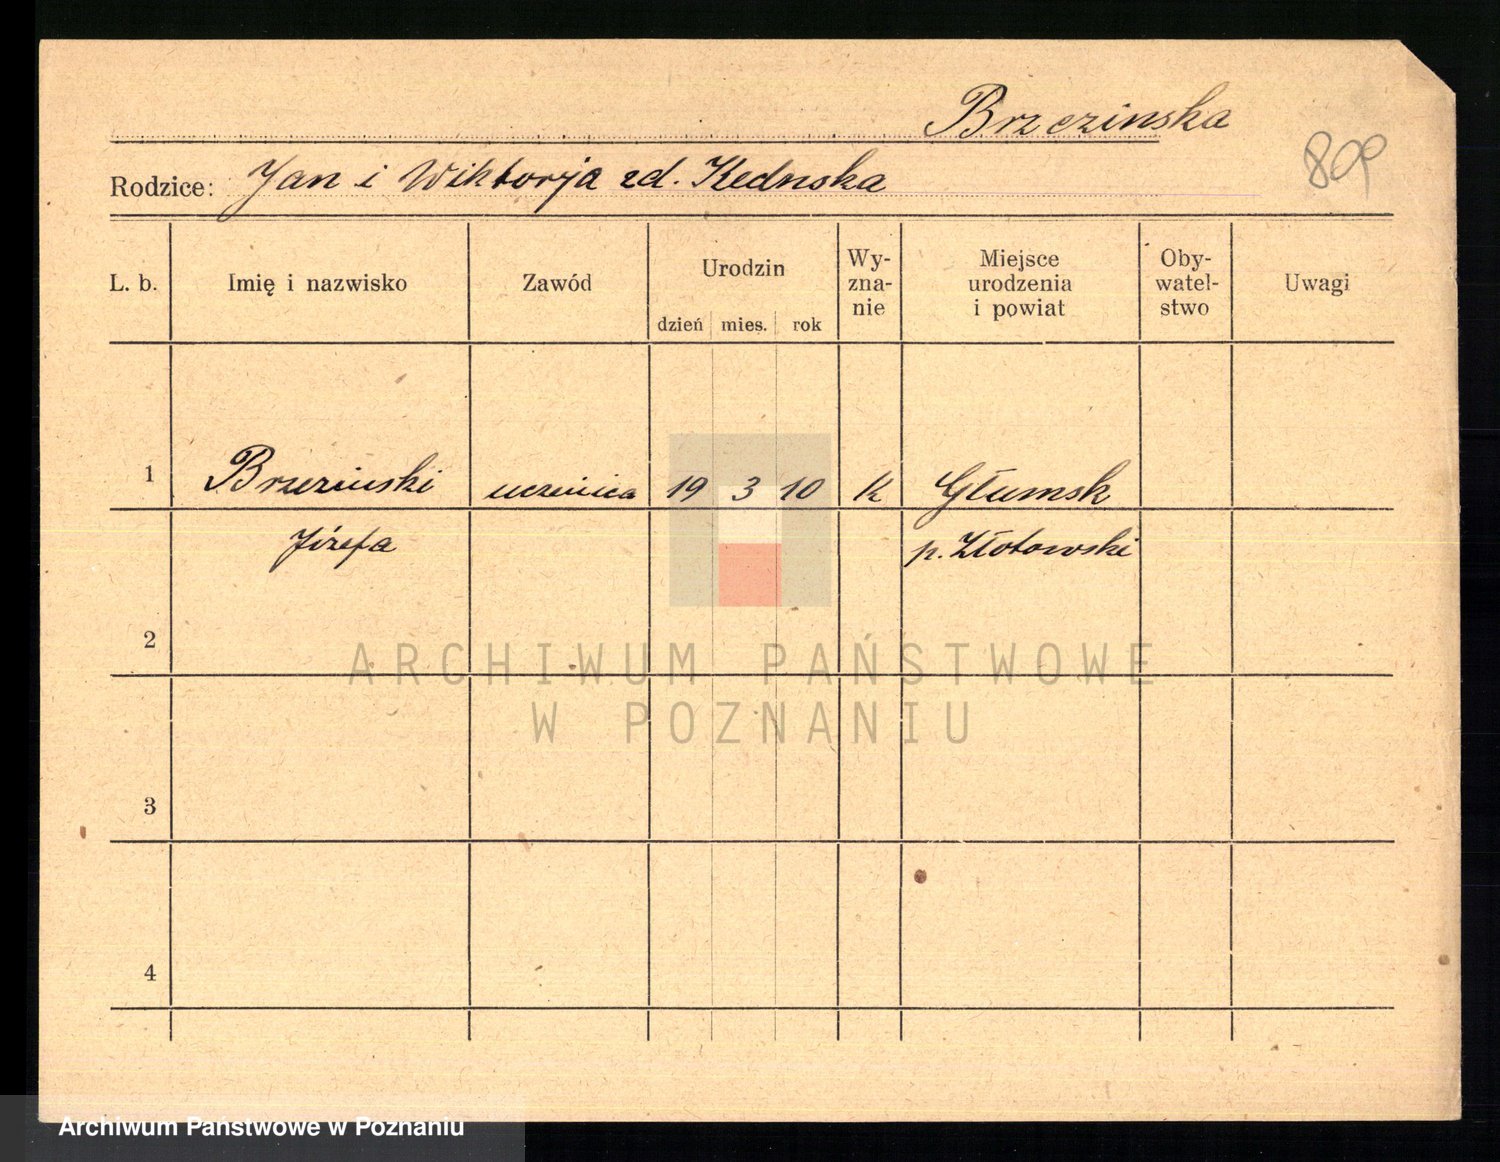 Brzezinska
809
Rodzice: Jan i Wiktorja zd. Kednska
L. b. Imię i nazwisko Zawód Urodzin Wy-zna-nie Miejsce urodzenia i powiat Oby-watel-stwo Uwagi
dzień mies. rok
1 Brzezinski uczenica 19 3 10 K Głumsk
Józefa p. Złotowski
2
ARCHIWUM PAŃSTWOWE
W POZNANIU
3
4
Archiwum Państwowe w Poznaniu